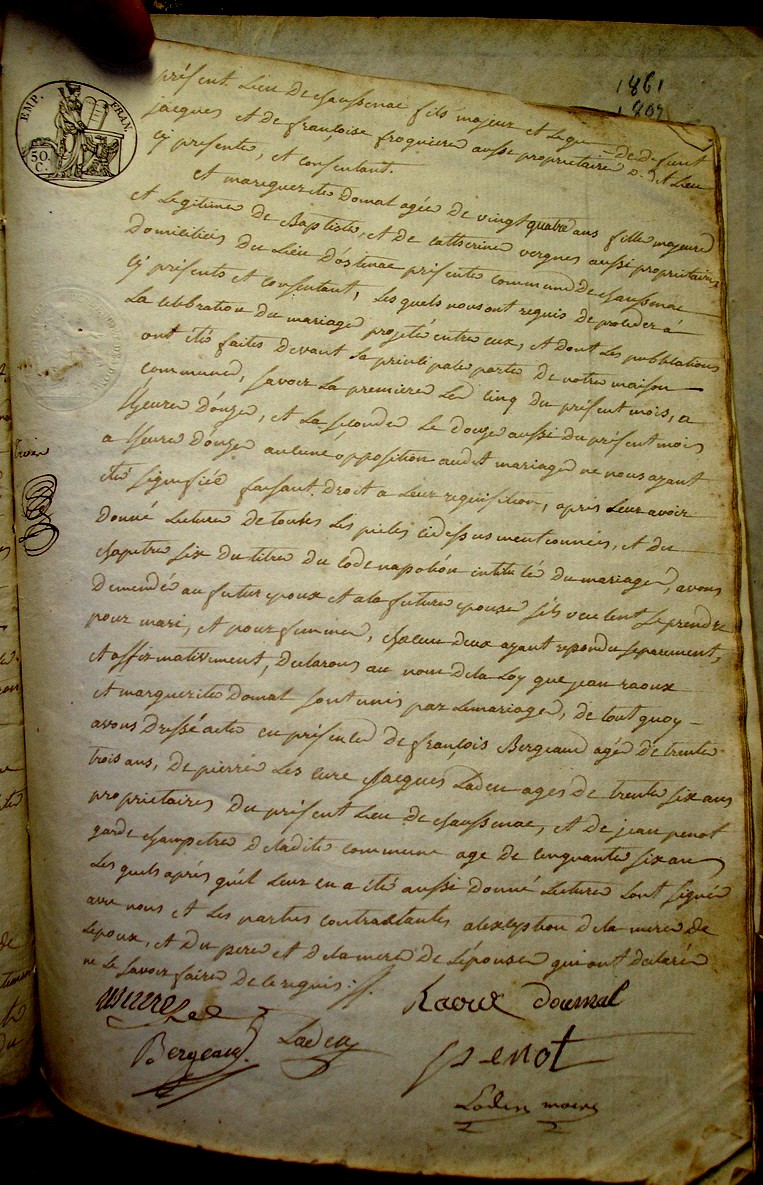 EMP. FRAN.
50. C.
1861
1809
présent Lieu de chaussenac fils majeur et Legme de defunt
jacques et de françoise froquiere aussi proprietaire du dt Lieu
cy presente, et consentant.
Et margueritte Domal agée de vingt quatre ans fille majeure
et Legitime de Baptiste, et de catherine vergnes aussi proprietaires
domiciliés du Lieu d'ostenac présente commune de chaussenac
cy présents et consentant, Les quels nous ont requis de proceder a
La celebration du mariage projeté entre eux, et dont Les publications
ont étés faites devant la principale porte de notre maison
commune, savoir La premiere Le cinq du présent mois, a
L'heure d'onze, et La seconde Le douze aussi du présent mois
a L'heure d'onze aucune opposition audt mariage ne nous ayant
été signifiée faisant droit a Leur requisition, après Leur avoir
donné Lecture de toutes Les pieces cidessus mentionnées, et du
chapitre six du titre du code napoléon intitulé du mariage, avons
demendé au futur epoux et a la future epouse s'ils veulent se prendre
pour mari, et pour femme, chacun deux ayant repondu separement,
et affirmativement, declarons au nom de la Loy que jean raoux
et marguerite Domal sont unis par Le mariage, de tout quoy
avons dressé acte en présence de françois Bergeaud agé de trente
trois ans, de pierre Les cure jacques Laden ages de trente six ans
proprietaires du présent Lieu de chaussenac, et de jean penot
garde champetre de ladite commune age de cinquante six ans
Les quels après qu'il Leur en a été aussi donné Lecture sont signés
avec nous et Les parties contractantes a lexception de la mere de
Lepoux, et du pere et de la mere de Lépouse qui ont declaré
ne Le savoir faire de ce requis :
Raoux Doumal
Bergeaud Laden
penot
Laden maire